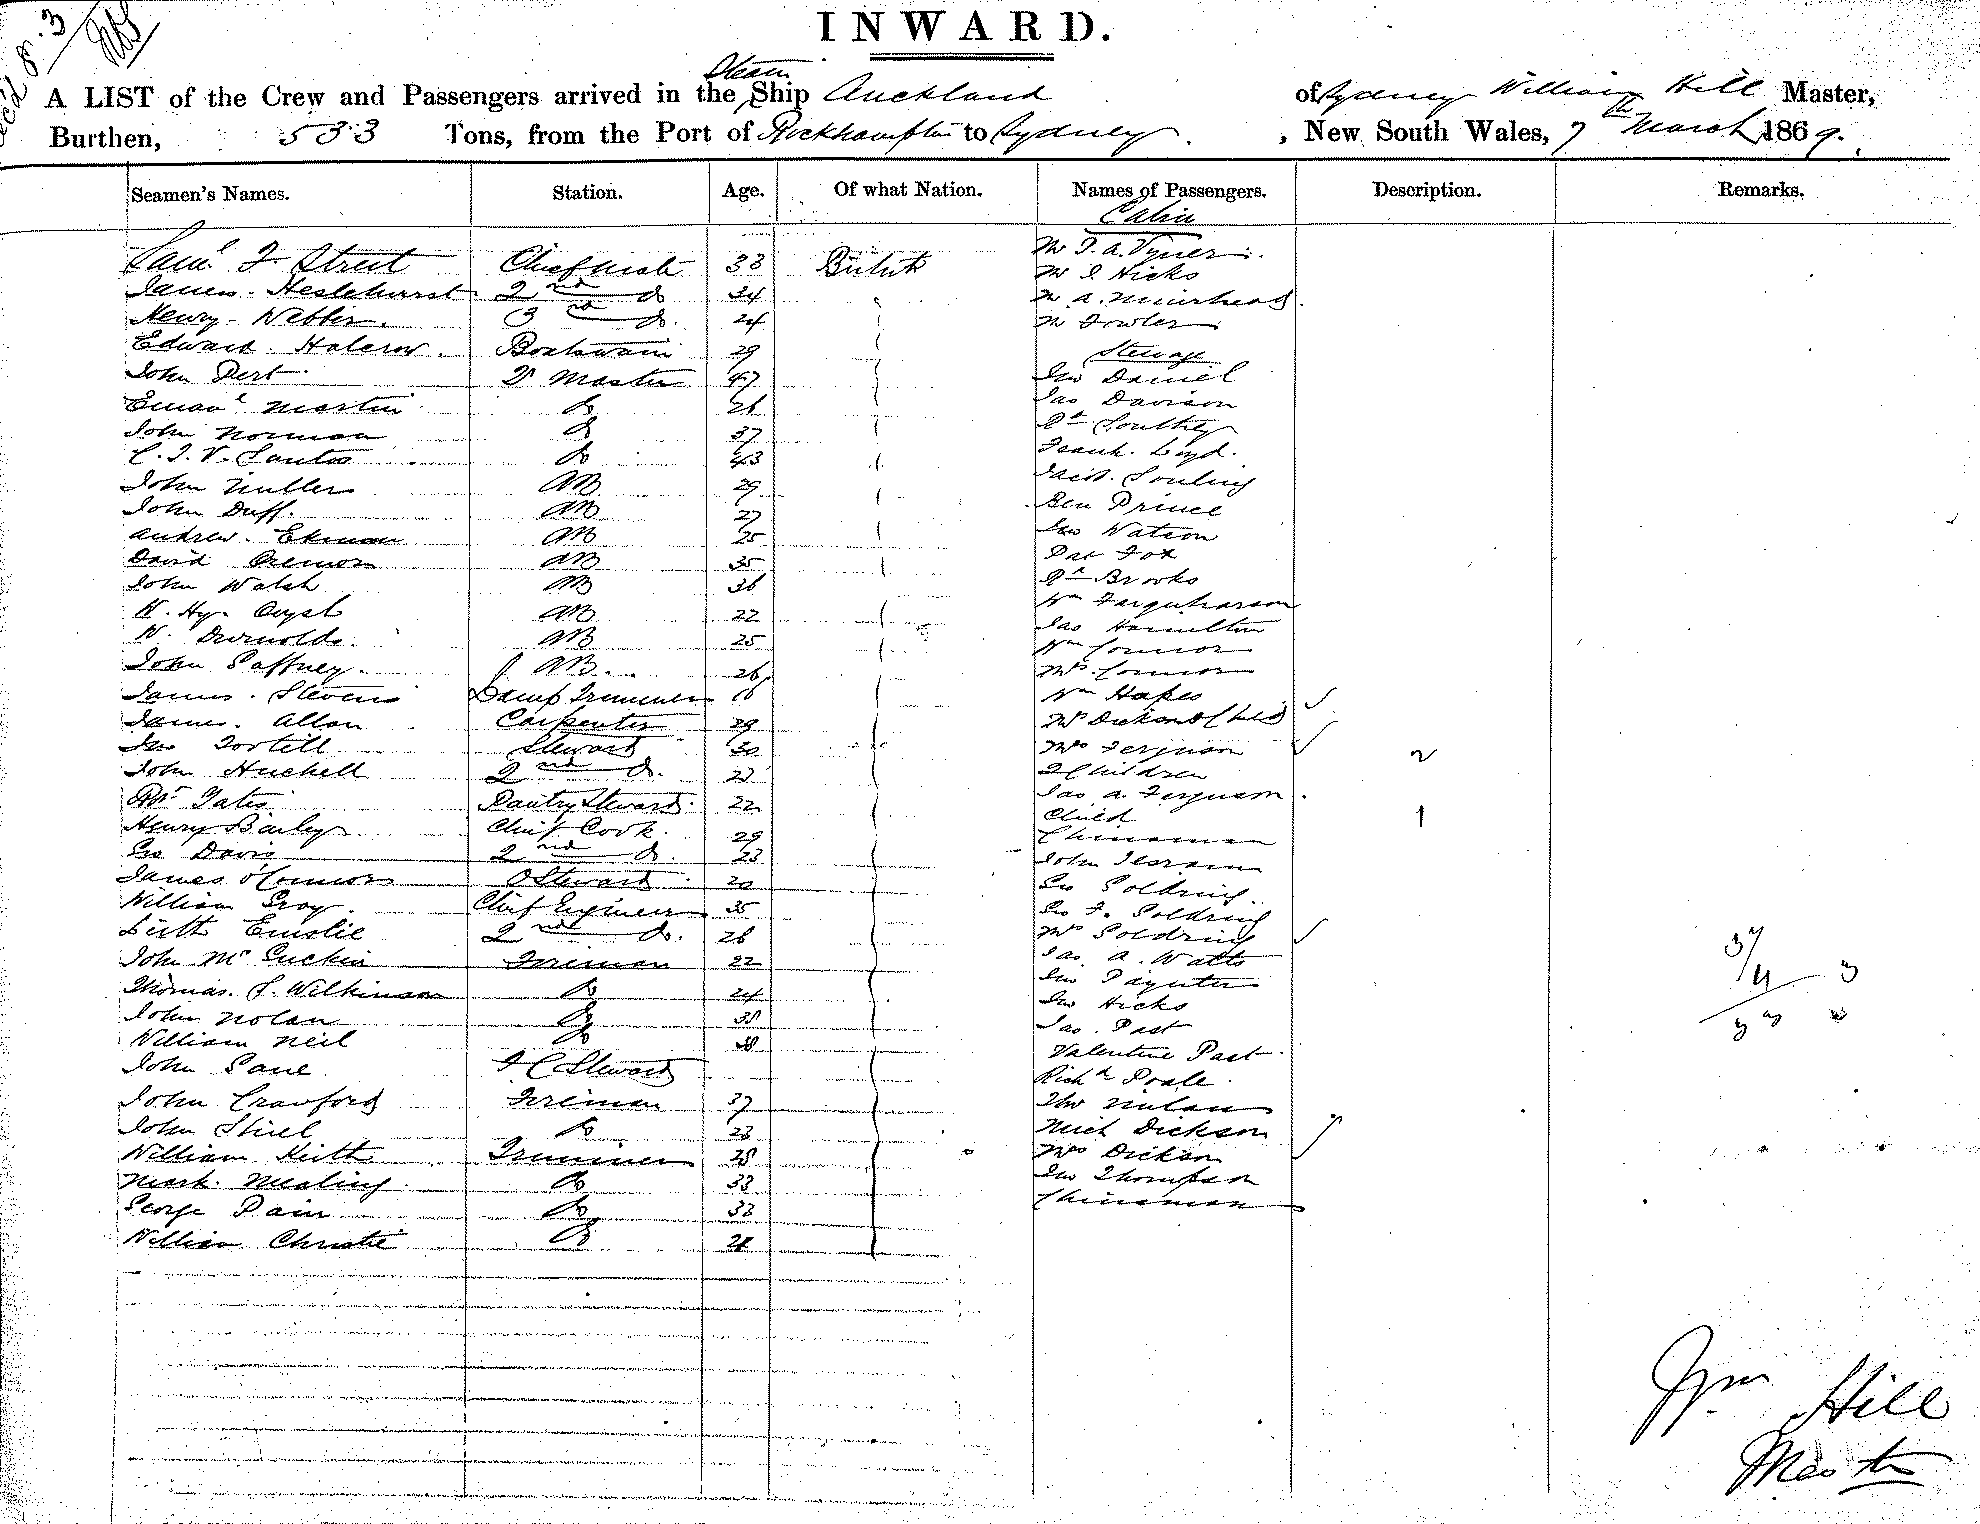 8.3
INWARD.
Steam
A LIST of the Crew and Passengers arrived in the Ship Auckland of Sydney William Hill Master,
Burthen, 533 Tons, from the Port of Rockhampton to Sydney, New South Wales, 7th March 1869.
Seamen's Names. Station. Age. Of what Nation. Names of Passengers. Description. Remarks.
Cabin
Saml F Street Chief Mate 33 British Mr Vyner
James Heslehurst 2nd Do 34 Mr Hicks
Henry Webber 3rd Do. 24 Mr A. Muirhead
Edward Halcrow Boatswain 29 Mr Fowler
Steerage
John Pert Qr Master 47 Jno Daniel
Emanl Martin Do 26 Jas Davison
John Norman Do 37 Rt Southey
Santos Do 43 Frank Loyd.
John AB 29
John Duff. AB 27 Ben Prince
Andrew Ekman AB 25 Jno Watson
David AB 35 Pat Fox
John Walsh AB 36 Rt Brooks
W. Hy. AB 22 Wm Farquharson
W. AB 25 Jas Hamilton
John Gaffney AB 26 Wm Connor
Mrs Connor
James Stevens Lamp Trimmer 16 Wm
James Allan Carpenter 29 Mrs Dickson & Child
Jno Steward 30 Mrs Ferguson
John 2nd Do. 23 2 Children 2
Rt Yates Pantry Steward 22 Jas A. Ferguson
Henry Bailey Chief Cook 29 Child 1
Chinaman
Geo Davis 2nd Do. 23 John
James O'Connor Steward 20 Geo Goldring
William Gray Chief Engineer 35 Geo F. Goldring
Keith Emslie 2nd Do. 26 Mrs Goldring
John McGuckin Fireman 22 Jas. A. Watts
Thomas Wilkinson Do 24 Jno Paynter
John Nolan Do 38 Jno Hicks
William Neil Do 38 Jas. Past
John Lane F C Steward Valentine Past
Richd Poale
John Crawford Fireman 37 Nolan
John Shiel Do 23 Mich Dickson
William Keith Trimmer 28 Mrs Dickson
Mark Do 33 Jno Thompson
George Pain Do 33 Chinaman
William Christie Do 28
37
4 3
Wm Hill
Master